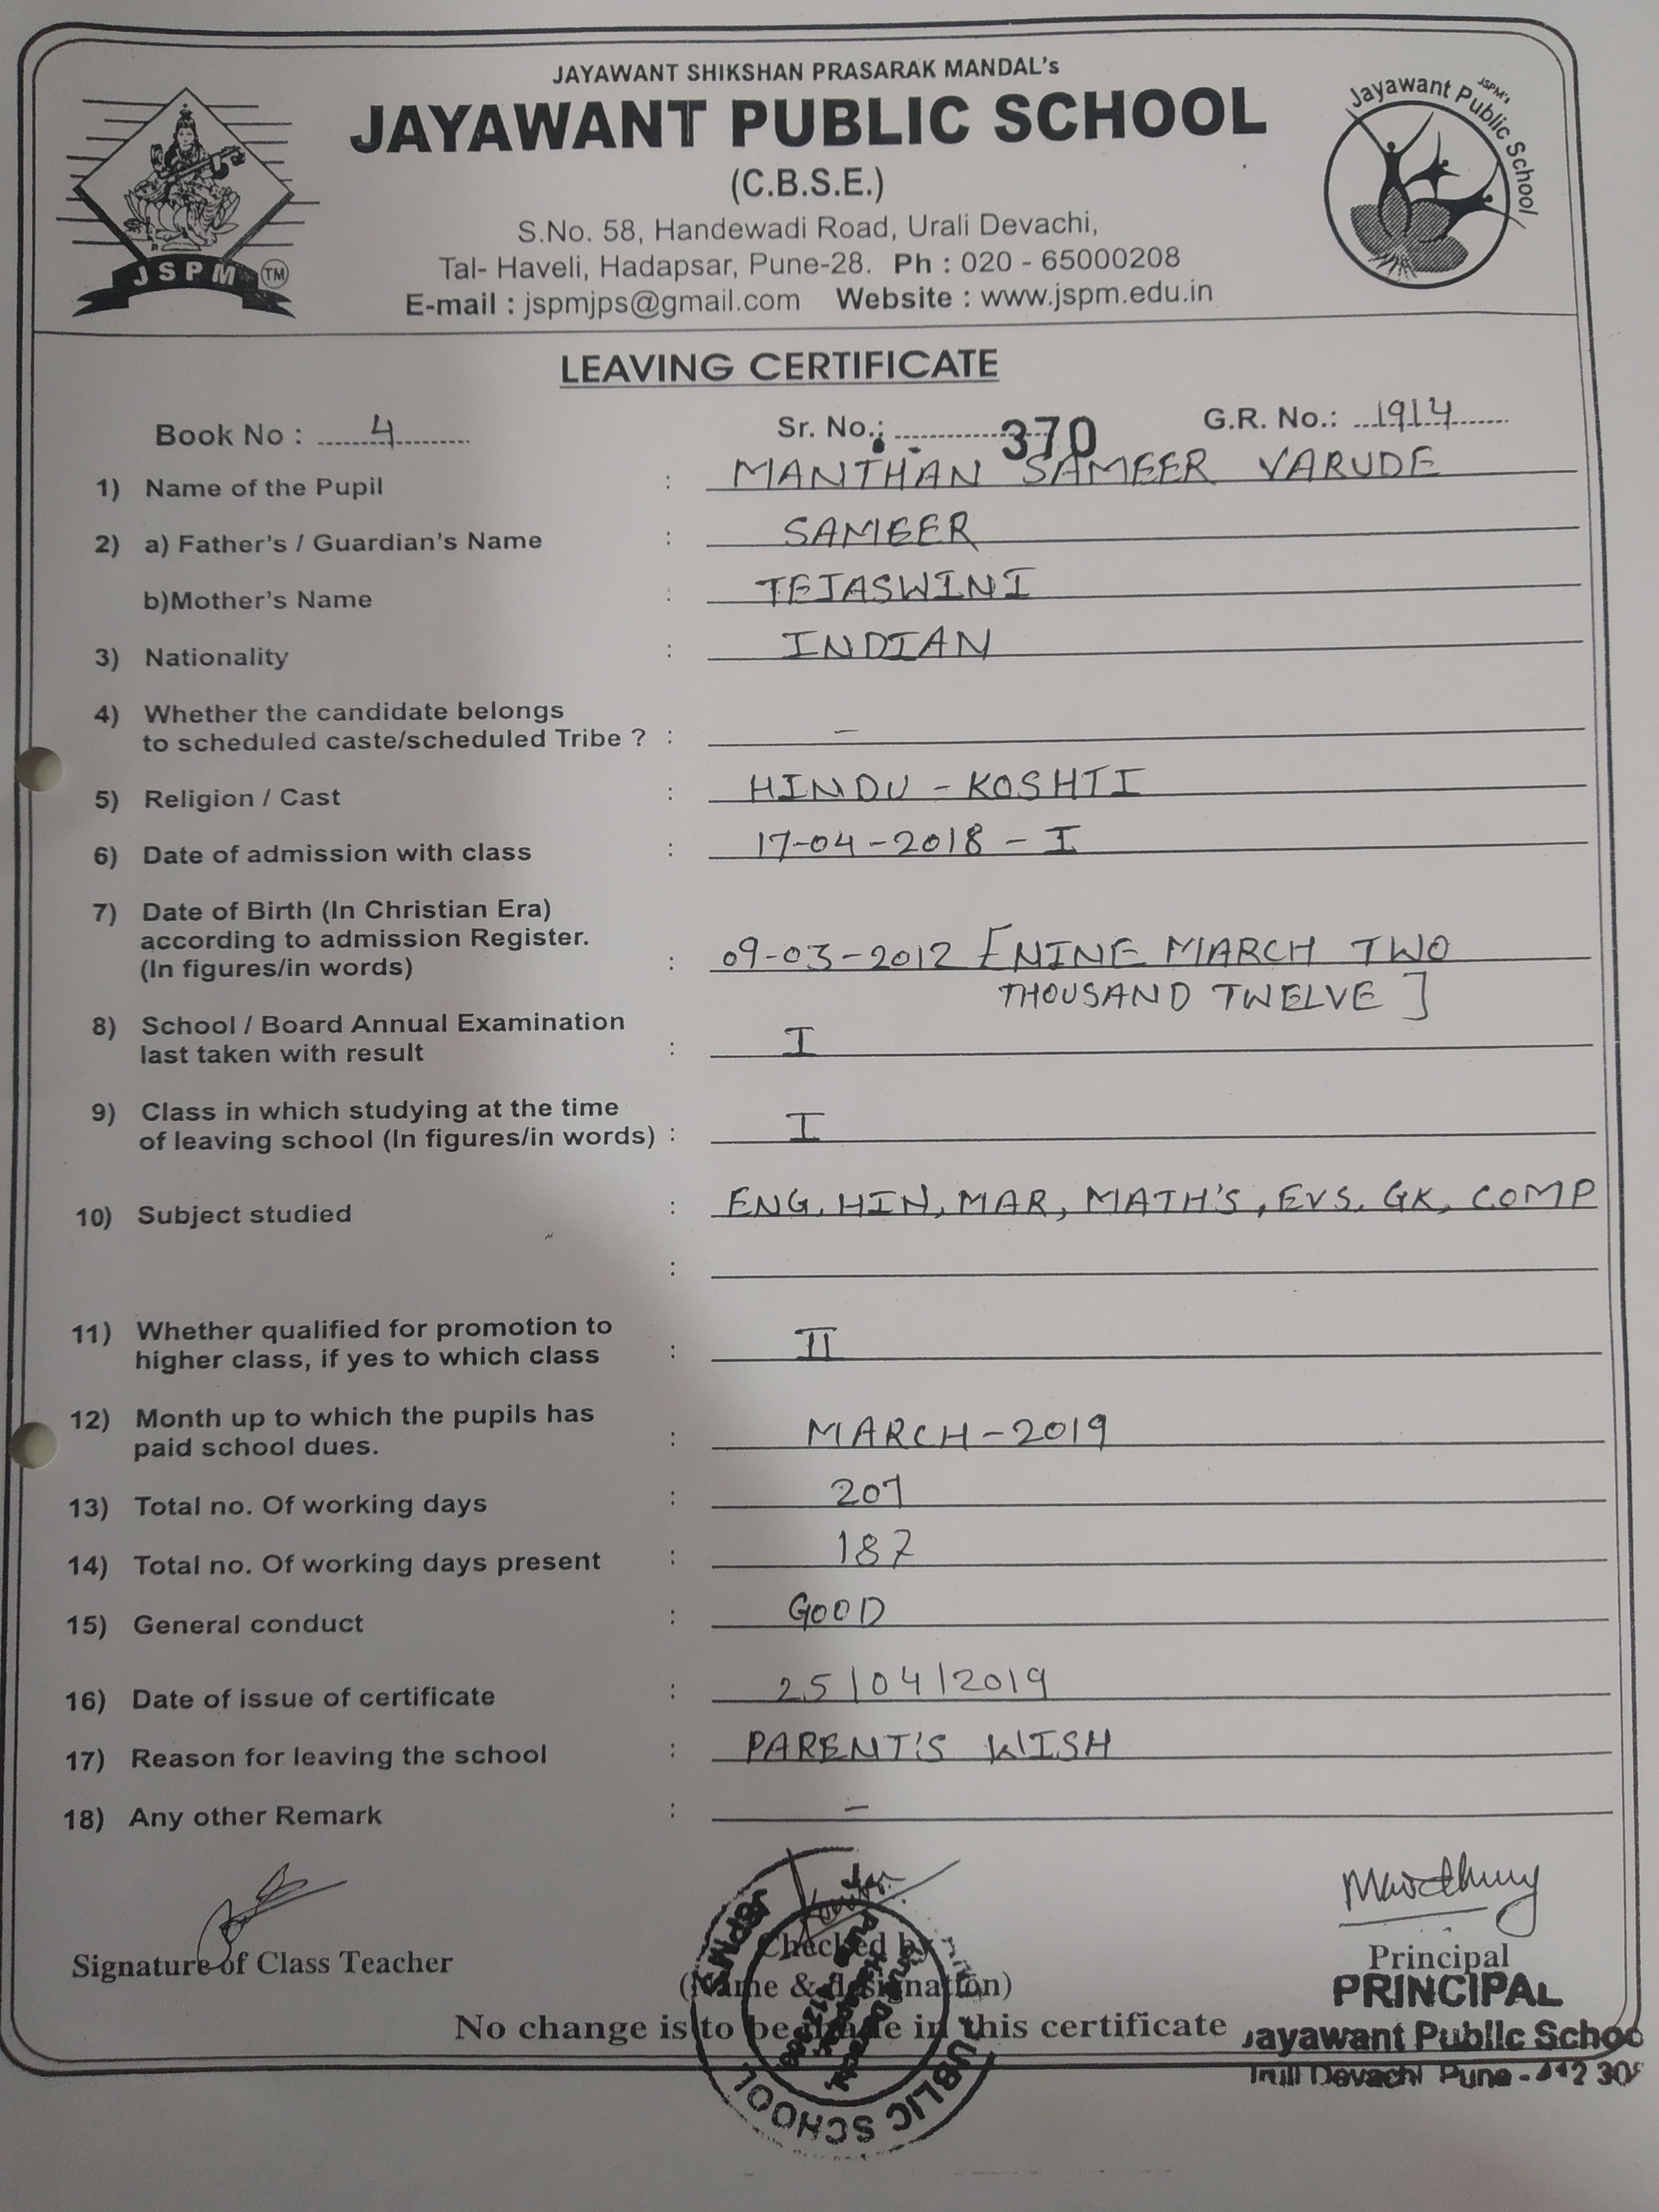 JAYAWANT SHIKSHAN PRASARAK MANDAL's
JAYAWANT PUBLIC SCHOOL
(C.B.S.E.)
S.No. 58, Handewadi Road, Urali Devachi,
Tal- Haveli, Hadapsar, Pune-28. Ph : 020 - 65000208
E-mail : jspmjps@gmail.com Website : www.jspm.edu.in
JSPM TM
JSPM's
Jayawant Public School
LEAVING CERTIFICATE
Book No : 4 Sr. No.: 370 G.R. No.: 1914
1) Name of the Pupil : MANTHAN SAMEER VARUDE
2) a) Father's / Guardian's Name : SAMEER
b)Mother's Name : TEJASWINI
3) Nationality : INDIAN
4) Whether the candidate belongs
to scheduled caste/scheduled Tribe ? : –
5) Religion / Cast : HINDU - KOSHTI
6) Date of admission with class : 17-04-2018 - I
7) Date of Birth (In Christian Era)
according to admission Register.
(In figures/in words) : 09-03-2012 [NINE MARCH TWO
THOUSAND TWELVE ]
8) School / Board Annual Examination
last taken with result : I
9) Class in which studying at the time
of leaving school (In figures/in words) : I
10) Subject studied : ENG, HIN, MAR, MATH'S, EVS. GK, COMP
:
11) Whether qualified for promotion to
higher class, if yes to which class : II
12) Month up to which the pupils has
paid school dues. : MARCH-2019
13) Total no. Of working days : 207
14) Total no. Of working days present : 187
15) General conduct : GOOD
16) Date of issue of certificate : 25/04/2019
17) Reason for leaving the school : PARENT'S WISH
18) Any other Remark : –
Signature of Class Teacher
Checked by
(Name & designation)
Principal
PRINCIPAL
No change is to be made in this certificate
Jayawant Public Schoo
Devachi Pune - 412 30
JSPM'S
PUBLIC SCHOOL